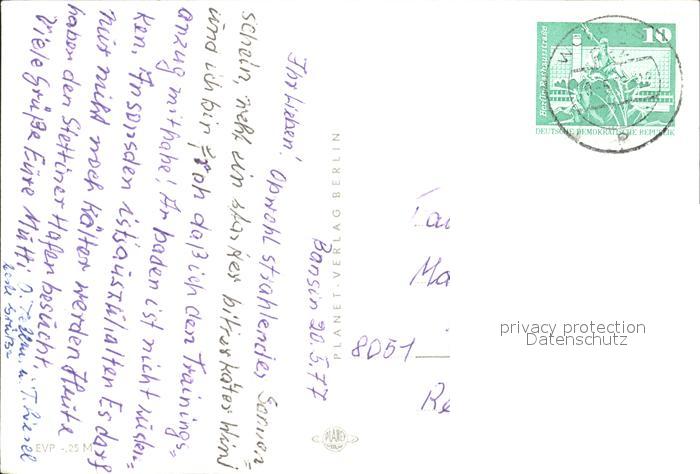 Bansin 20.5.77
Ihr Lieben! Obwohl strahlender Sonnen=
schein, weht ein starker bitterkalter Wind
und ich bin froh daß ich den Trainings=
anzug mithabe! An baden ist nicht zu den=
ken. Ansonsden ist's auszuhalten Es darf
nur nicht noch kälter werden Heute
haben den Stettiner Hafen besucht.
Viele Grüße Eure Mutti
O. u. T. Liesel
PLANET-VERLAG BERLIN
EVP -.25 M
PLANET
10
Berlin, Rathausstraße
DEUTSCHE DEMOKRATISCHE REPUBLIK
Ma
8051
Re
privacy protection
Datenschutz